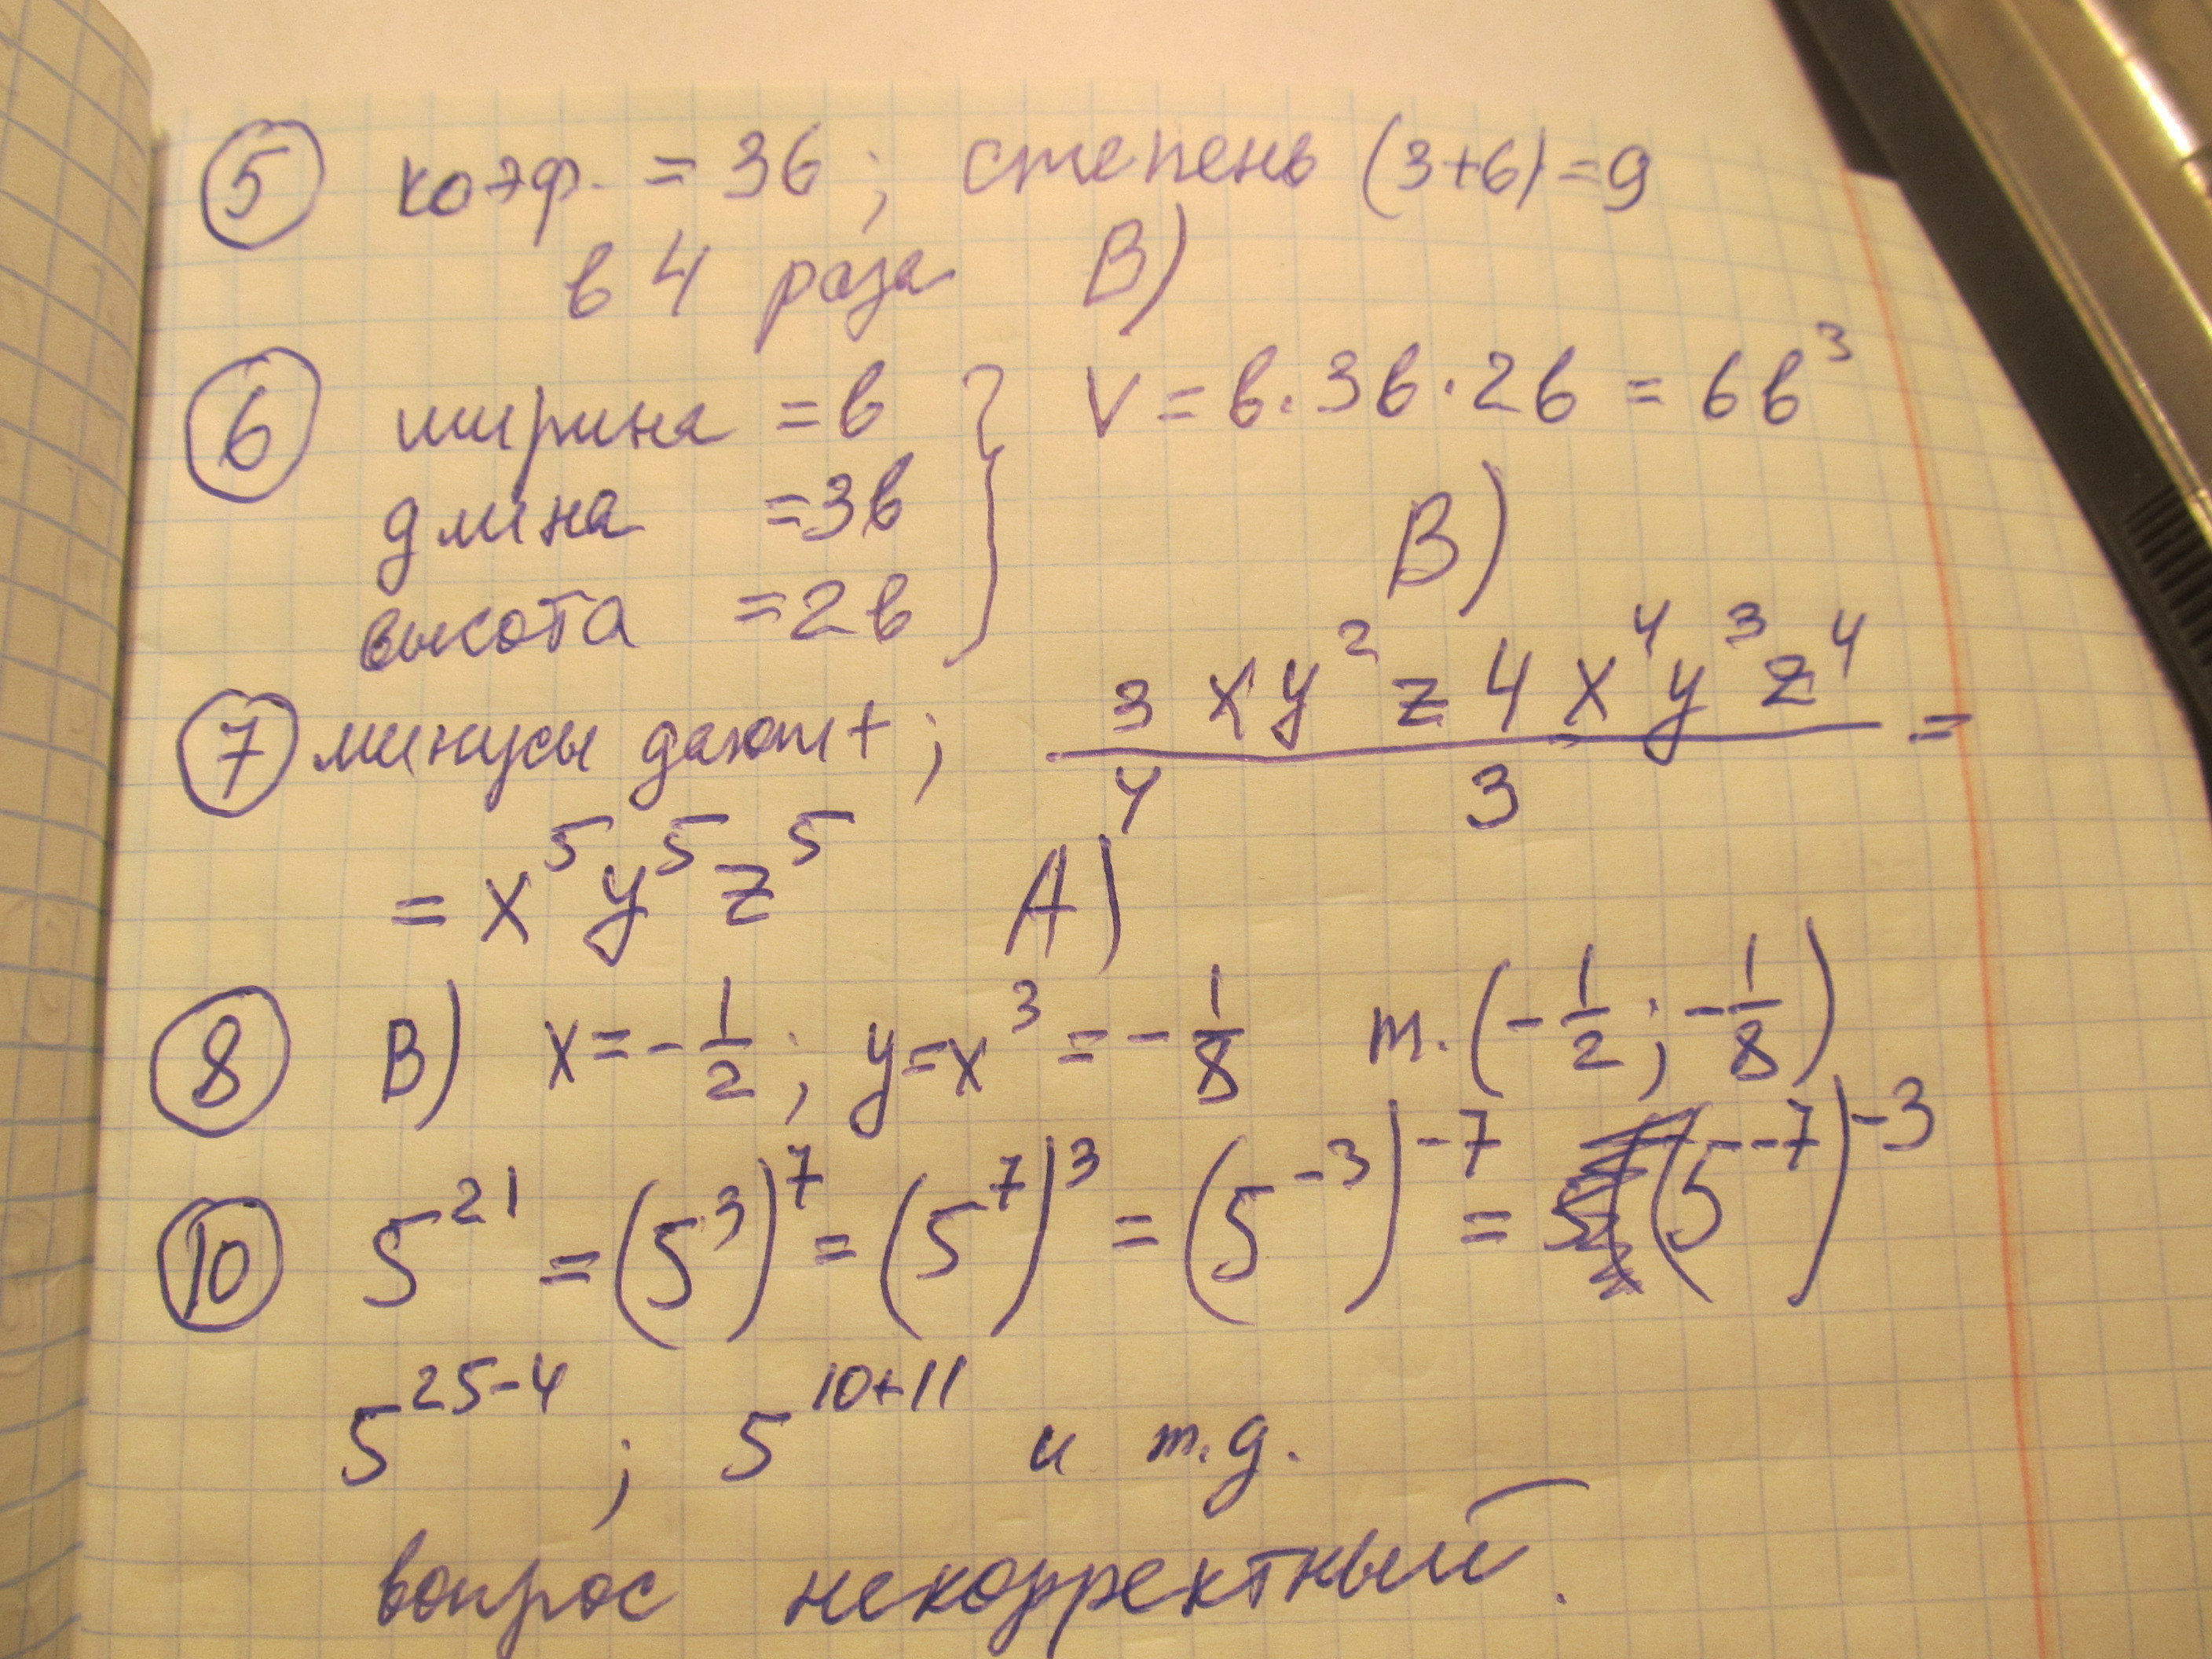 ⑤ коэф. = 36; степень (3+6)=9
в 4 раза В)
⑥ ширина = в } V = в · 3в · 2в = 6в³
длина = 3в
В)
высота = 2в
⑦ минусы дают +; (3xy²z 4x⁴y³z⁴)/(4 3) =
= x⁵y⁵z⁵ А)
⑧ В) x = -1/2; y = x³ = -1/8 т. (-1/2; -1/8)
⑩ 5²¹ = (5³)⁷ = (5⁷)³ = (5⁻³)⁻⁷ = (5⁻⁷)⁻³
5²⁵⁻⁴; 5¹⁰⁺¹¹ и т.д.
вопрос некорректный.